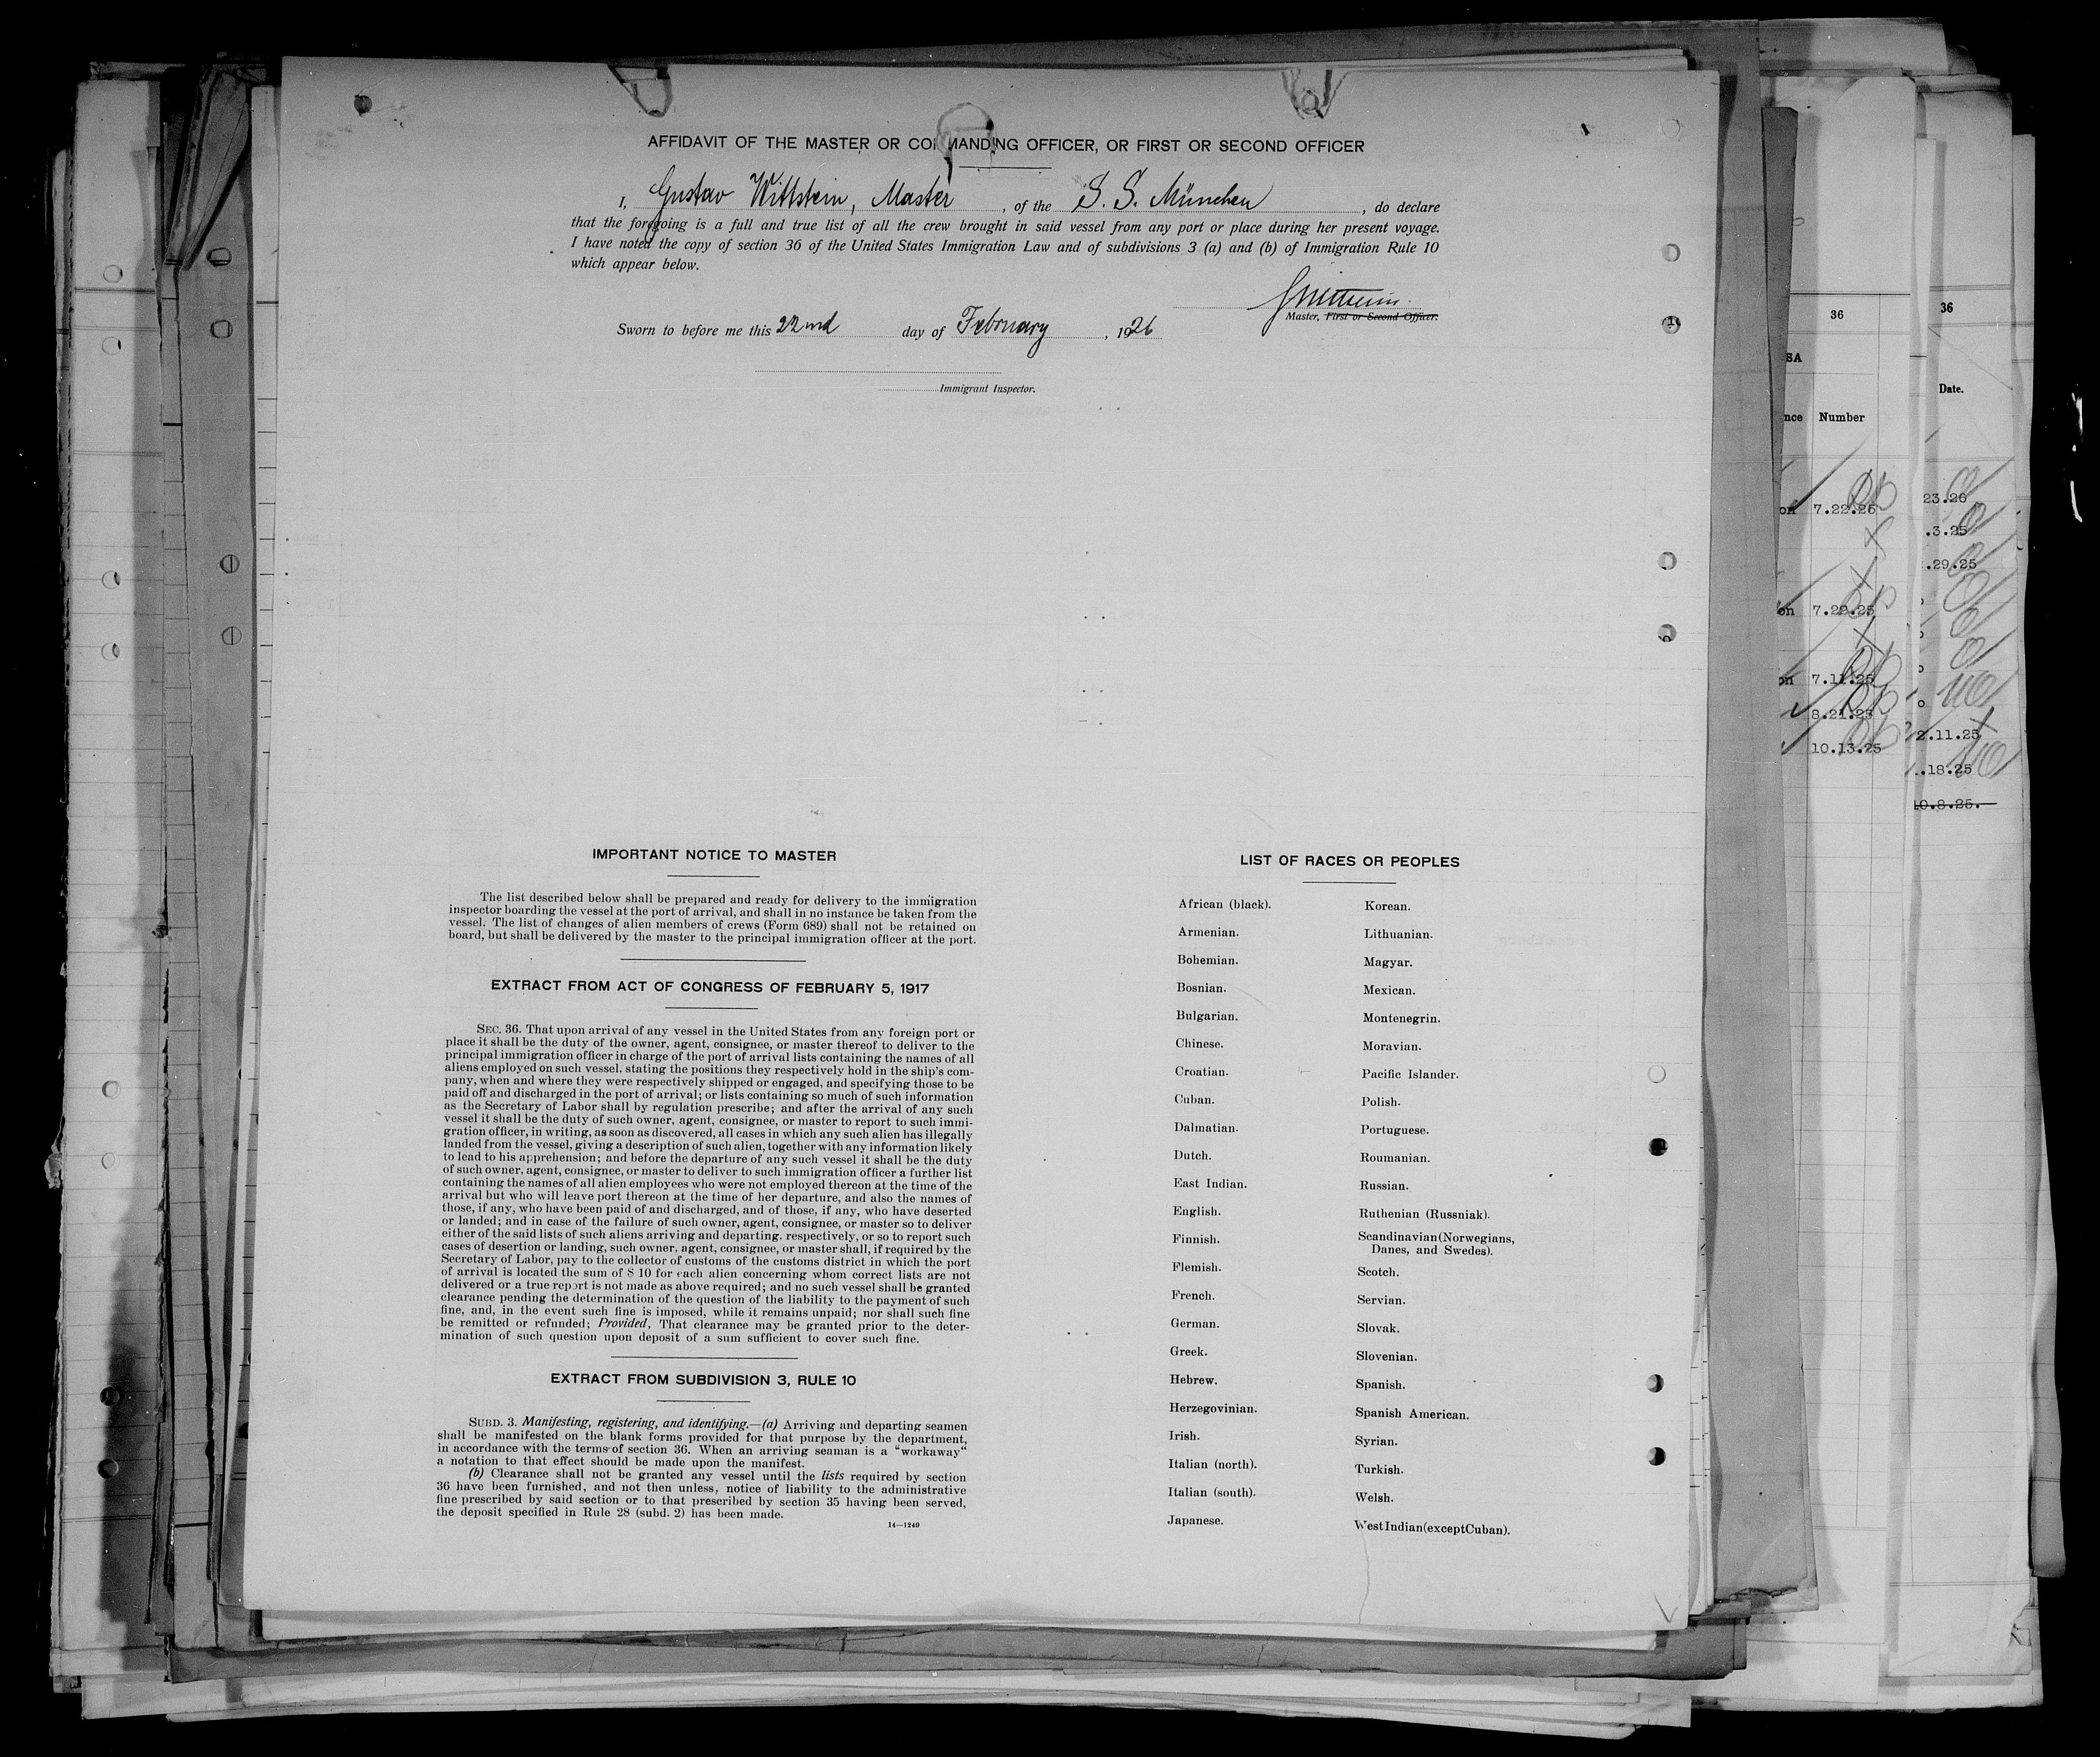 AFFIDAVIT OF THE MASTER OR COMMANDING OFFICER, OR FIRST OR SECOND OFFICER
I, Gustav Wittstein, Master, of the S. S. München, do declare
that the foregoing is a full and true list of all the crew brought in said vessel from any port or place during her present voyage.
I have noted the copy of section 36 of the United States Immigration Law and of subdivisions 3 (a) and (b) of Immigration Rule 10
which appear below.
Master, First or Second Officer.
Sworn to before me this 22nd day of February, 1926
Immigrant Inspector.
IMPORTANT NOTICE TO MASTER
The list described below shall be prepared and ready for delivery to the immigration
inspector boarding the vessel at the port of arrival, and shall in no instance be taken from the
vessel. The list of changes of alien members of crews (Form 689) shall not be retained on
board, but shall be delivered by the master to the principal immigration officer at the port.
EXTRACT FROM ACT OF CONGRESS OF FEBRUARY 5, 1917
SEC. 36. That upon arrival of any vessel in the United States from any foreign port or
place it shall be the duty of the owner, agent, consignee, or master thereof to deliver to the
principal immigration officer in charge of the port of arrival lists containing the names of all
aliens employed on such vessel, stating the positions they respectively hold in the ship's com-
pany, when and where they were respectively shipped or engaged, and specifying those to be
paid off and discharged in the port of arrival; or lists containing so much of such information
as the Secretary of Labor shall by regulation prescribe; and after the arrival of any such
vessel it shall be the duty of such owner, agent, consignee, or master to report to such immi-
gration officer, in writing, as soon as discovered, all cases in which any such alien has illegally
landed from the vessel, giving a description of such alien, together with any information likely
to lead to his apprehension; and before the departure of any such vessel it shall be the duty
of such owner, agent, consignee, or master to deliver to such immigration officer a further list
containing the names of all alien employees who were not employed thereon at the time of the
arrival but who will leave port thereon at the time of her departure, and also the names of
those, if any, who have been paid of and discharged, and of those, if any, who have deserted
or landed; and in case of the failure of such owner, agent, consignee, or master so to deliver
either of the said lists of such aliens arriving and departing, respectively, or so to report such
cases of desertion or landing, such owner, agent, consignee, or master shall, if required by the
Secretary of Labor, pay to the collector of customs of the customs district in which the port
of arrival is located the sum of $ 10 for each alien concerning whom correct lists are not
delivered or a true report is not made as above required; and no such vessel shall be granted
clearance pending the determination of the question of the liability to the payment of such
fine, and, in the event such fine is imposed, while it remains unpaid; nor shall such fine
be remitted or refunded; Provided, That clearance may be granted prior to the deter-
mination of such question upon deposit of a sum sufficient to cover such fine.
EXTRACT FROM SUBDIVISION 3, RULE 10
SUBD. 3. Manifesting, registering, and identifying.—(a) Arriving and departing seamen
shall be manifested on the blank forms provided for that purpose by the department,
in accordance with the terms of section 36. When an arriving seaman is a "workaway"
a notation to that effect should be made upon the manifest.
(b) Clearance shall not be granted any vessel until the lists required by section
36 have been furnished, and not then unless, notice of liability to the administrative
fine prescribed by said section or to that prescribed by section 35 having been served,
the deposit specified in Rule 28 (subd. 2) has been made.
14—1240
LIST OF RACES OR PEOPLES
African (black).
Armenian.
Bohemian.
Bosnian.
Bulgarian.
Chinese.
Croatian.
Cuban.
Dalmatian.
Dutch.
East Indian.
English.
Finnish.
Flemish.
French.
German.
Greek.
Hebrew.
Herzegovinian.
Irish.
Italian (north).
Italian (south).
Japanese.
Korean.
Lithuanian.
Magyar.
Mexican.
Montenegrin.
Moravian.
Pacific Islander.
Polish.
Portuguese.
Roumanian.
Russian.
Ruthenian (Russniak).
Scandinavian (Norwegians,
Danes, and Swedes).
Scotch.
Servian.
Slovak.
Slovenian.
Spanish.
Spanish American.
Syrian.
Turkish.
Welsh.
West Indian (except Cuban).
36
Number
7.22.26
7.22.25
7.11.25
8.21.25
10.13.25
36
Date.
23.26
.3.25
.29.25
2.11.25
.18.25
10.8.25.